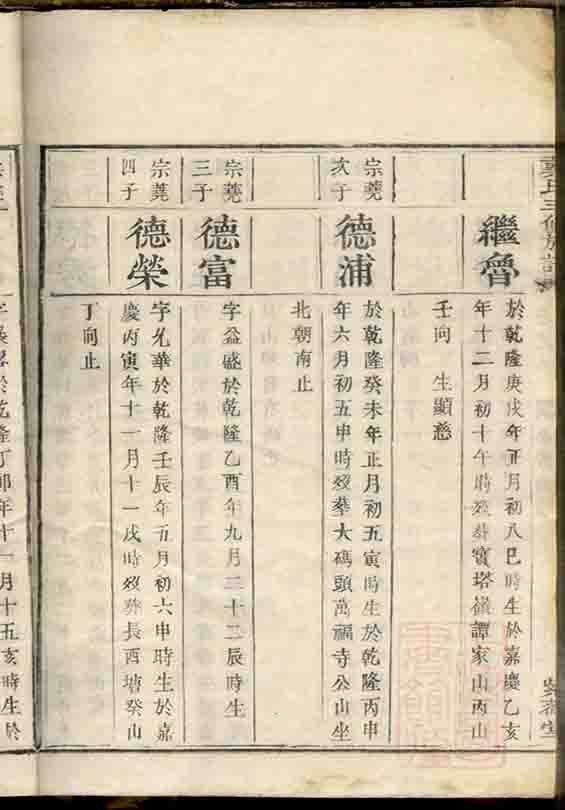 繼魯
於乾隆庚戌年正月初八巳時生於嘉慶乙亥
年十二月初十午時歿葬寶塔嶺譚家山丙山
壬向 生顯慈
宗蕘
次子
德浦
於乾隆癸未年正月初五寅時生於乾隆丙申
年六月初五申時歿葬大碼頭萬福寺公山坐
北朝南止
宗蕘
三子
德富
字益盛於乾隆乙酉年九月二十二辰時生
宗蕘
四子
德榮
字允華於乾隆壬辰年五月初六申時生於嘉
慶丙寅年十一月十一戌時歿葬長西塘癸山
丁向止
於乾隆丁卯年十一月十五亥時生於